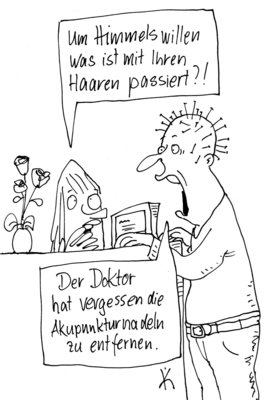 Um Himmels willen
was ist mit Ihren
Haaren passiert?!
Der Doktor
hat vergessen die
Akupunkturnadeln
zu entfernen.